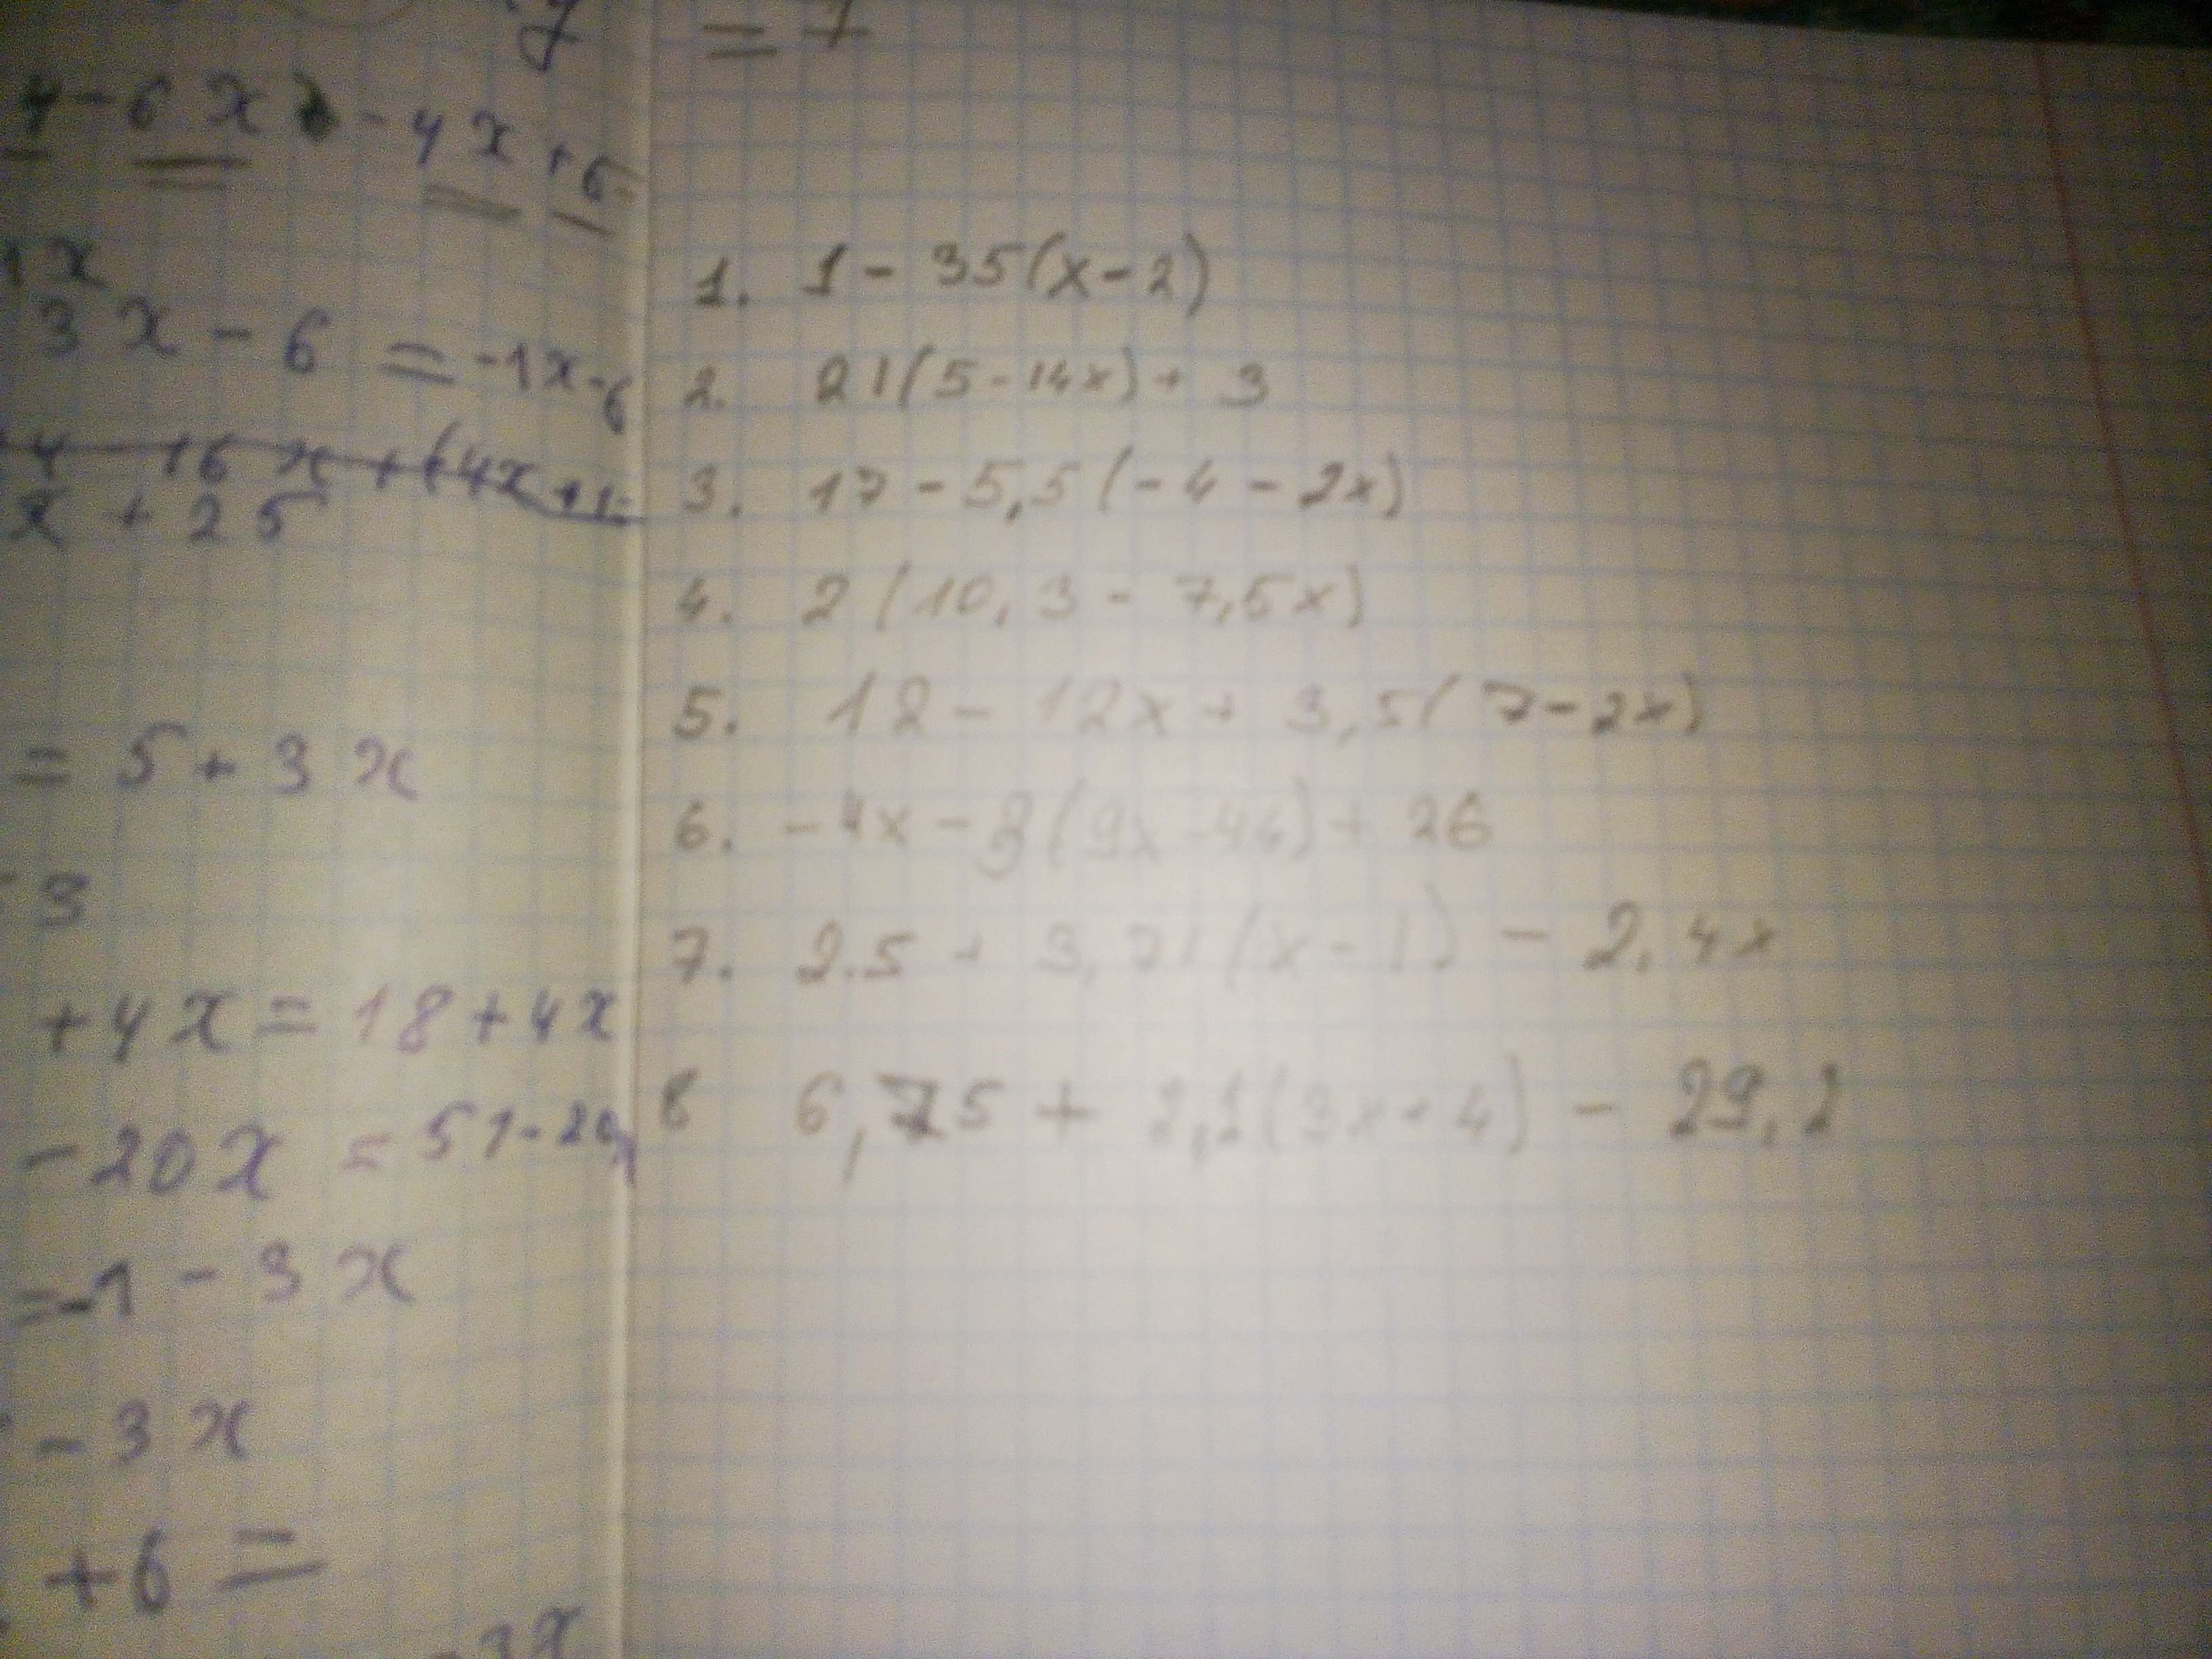 = 7
4 - 6x - 4x + 6
1x
3x - 6 = -1x - 6
x + 25
= 5 + 3x
3
+ 4x = 18 + 4x
- 20x = 51 - 20x
= -1 - 3x
- 3x
+ 6 =
1. 1 - 35(x - 2)
2. 21(5 - 14x) + 3
3. 17 - 5,5(-4 - 2x)
4. 2(10,3 - 7,5x)
5. 12 - 12x + 3,5(7 - 2x)
6. -4x - 8(9x - 44) + 26
7. 2.5 + 3,71(x - 1) - 2,4x
8 6,75 + 2,1(3x + 4) - 29,2